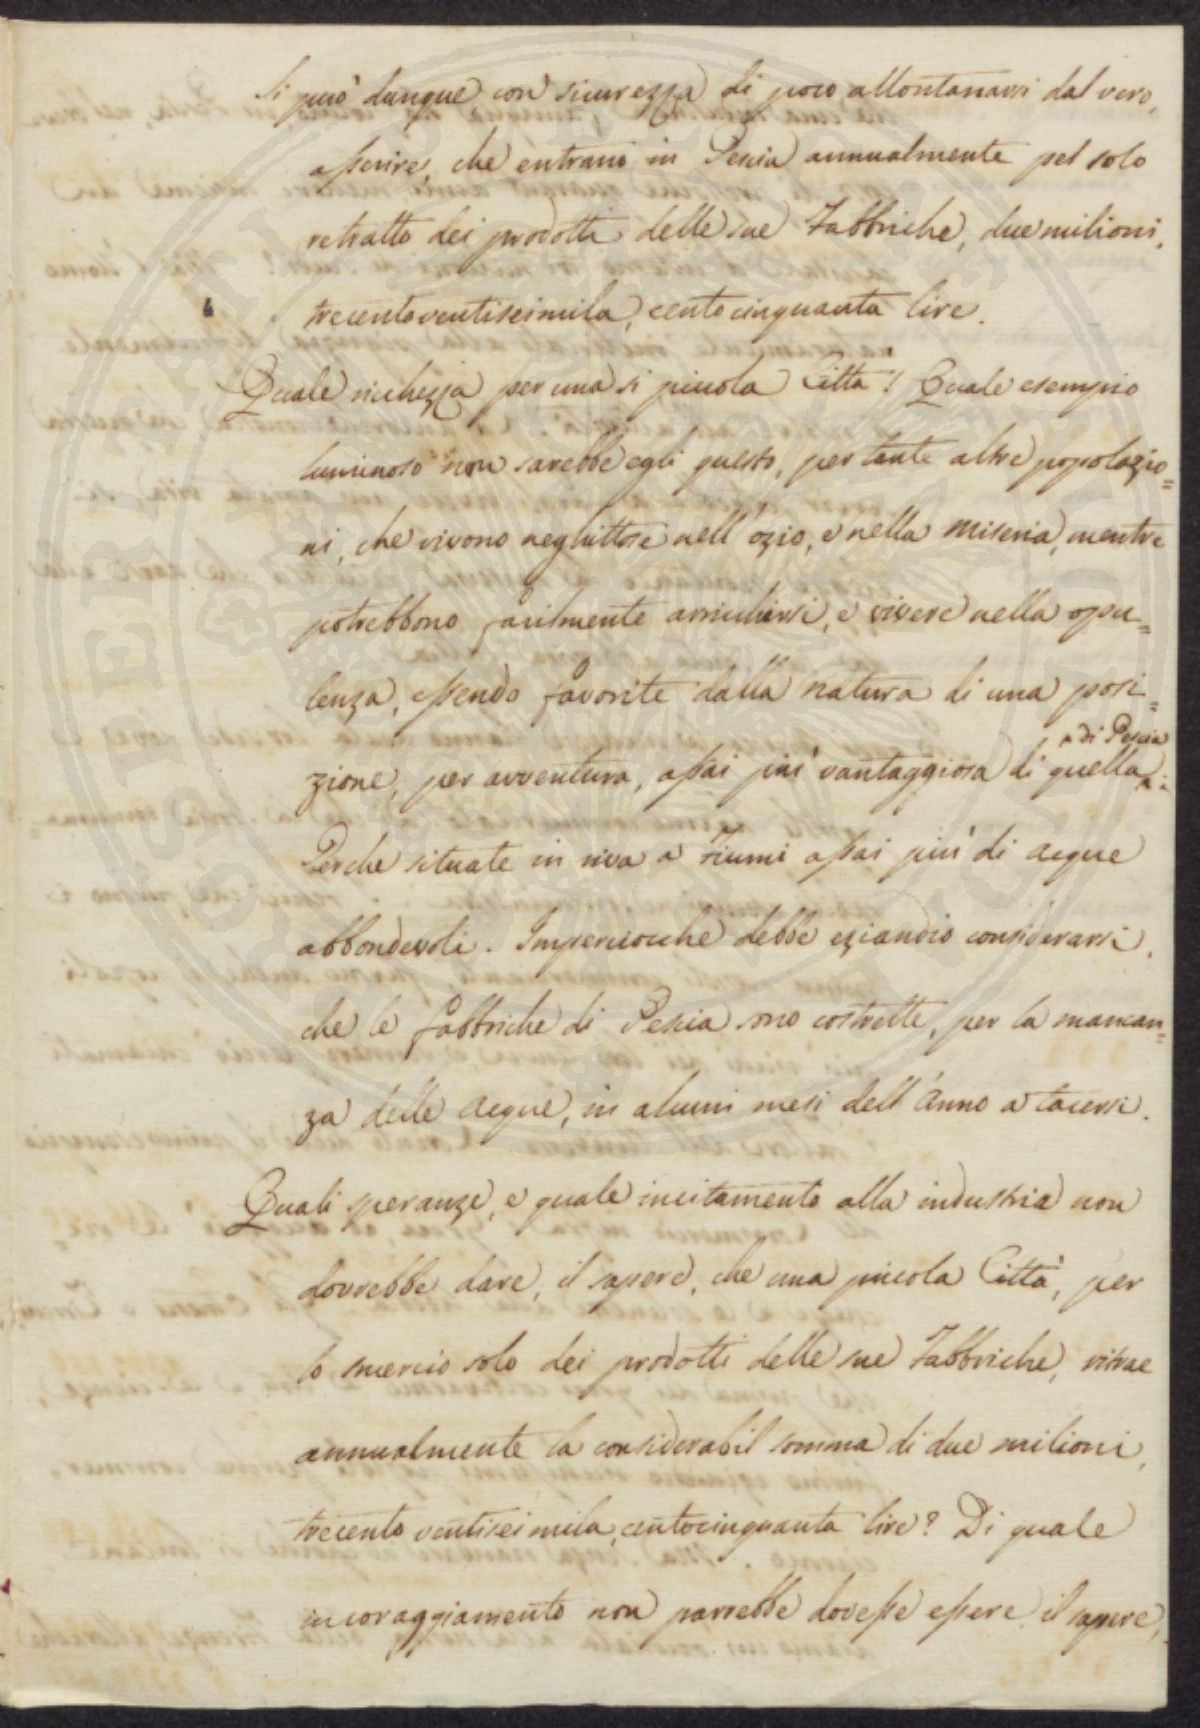 Si può dunque con sicurezza di poco allontanarsi dal vero,
asserire, che entrano in Pescia annualmente pel solo
retratto dei prodotti delle sue Fabbriche, due milioni,
trecentoventiseimila, centocinquanta lire.
Quale ricchezza per una si piccola Città! Quale esempio
luminoso non sarebbe egli questo, per tante altre popolazio=
ni, che vivono neghittose nell'ozio, e nella miseria, mentre
potrebbono facilmente arricchirsi, e vivere nella opu=
lenza, essendo favorite dalla natura di una posi=
zione, per avventura, assai più vantaggiosa di quella
di Pescia
Perche situate in riva a Fiumi assai più di acque
abbondevoli. Imperciocche debbe eziandio considerarsi,
che le fabbriche di Pescia sono costrette, per la mancan=
za delle acque, in alcuni mesi dell'Anno a tacersi.
Quali speranze, e quale incitamento alla industria non
dovrebbe dare, il sapere, che una piccola Città, per
lo smercio solo dei prodotti delle sue Fabbriche, ritrae
annualmente la considerabil somma di due milioni,
trecento ventisei mila, centocinquanta lire? Di quale
incoraggiamento non parrebbe dovesse essere il sapere,
PROSPERITATI PUBLICAE